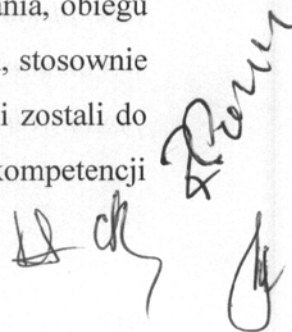 ania, obiegu
, stosownie
i zostali do
kompetencji